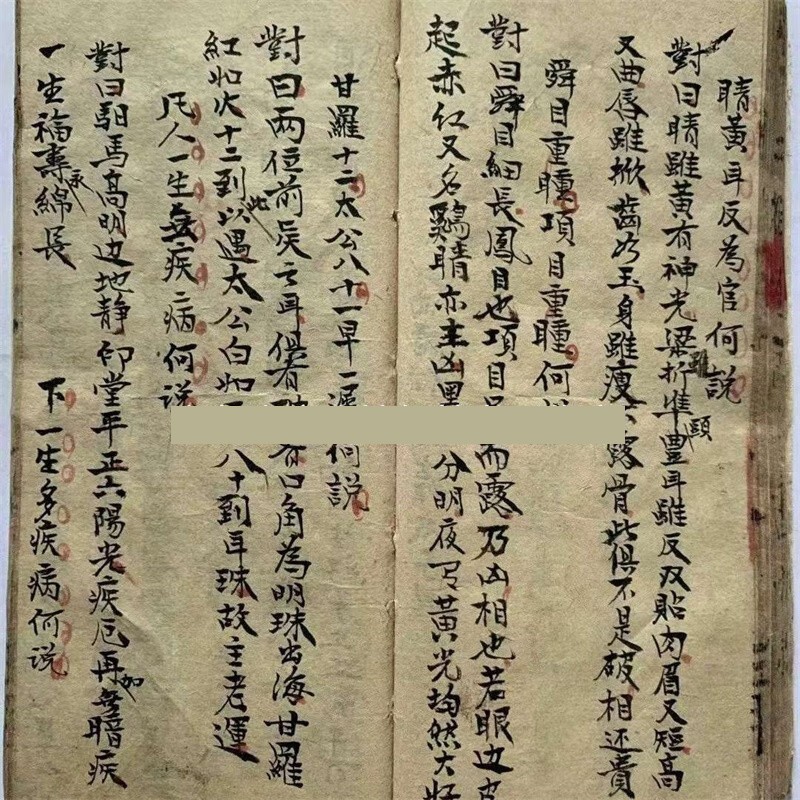 睛黃耳反為官何説
對曰睛雖黃有神光梁雖折準頭豊耳雖反又貼肉眉又短高
又曲唇雖掀齒乃玉身雖瘦不露骨此俱不是破相还貴
舜目重瞳項目重瞳何
對曰舜目細長鳳目也項目而露乃凶相也若眼边皮
起赤红又名鷄睛亦主凶分明夜有黃光均然大好
甘羅十二太公八十一早一何説
對曰兩位前矦之耳俱有口角為明珠出海甘羅
紅如火十二到此以遇太公白如八十到耳珠故主老運
凡人一生無疾病何説
對曰馹馬高明边地静印堂平正六陽光疾厄再加無暗疾
一生福寿永綿長
下一生多疾病何説